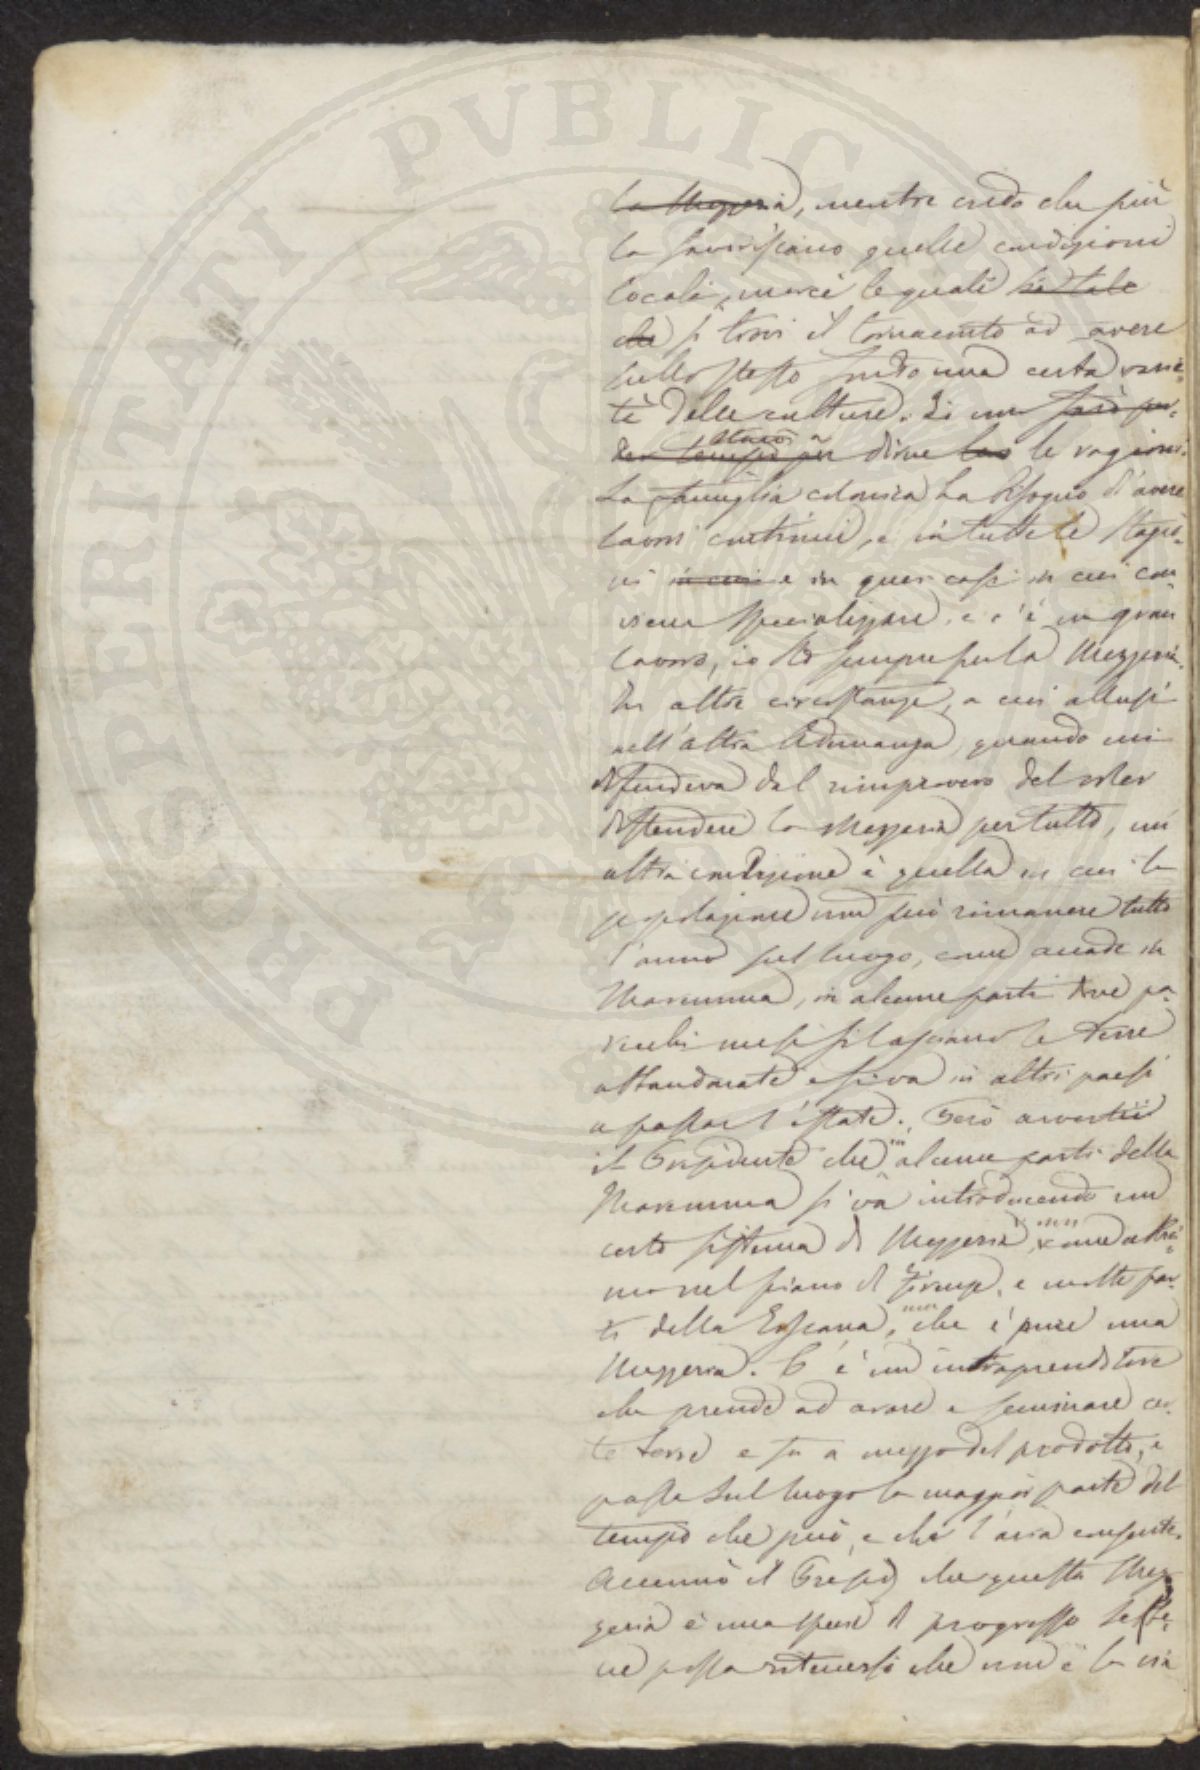 PROSPERITATI PVBLICAE
la Mezzeria, mentre credo che più
la favoriscano quelle condizioni
locali, mercè le quali sia tale
che si trovi il tornaconto ad avere
sullo stesso fondo una certa varie-
tà delle culture. Di ciò sarò per
dirne le ragioni.
La famiglia colonica ha bisogno d'avere
lavori continui, e in tutte le stagio-
ni in cui e in quei casi in cui con-
viene specializzare, e c'è un gran
lavoro, io sto sempre per la Mezzeria.
In altre circostanze, a cui allusi
nell'altra Adunanza, quando mi
difendeva dal rimprovero del voler
distendere la Mezzeria per tutto, un
altra condizione è quella in cui la
popolazione non può rimanere tutto
l'anno sul luogo, come accade in
Maremma, in alcune parti dove pa-
recchi mesi si lasciano le terre
abbandonate e si va in altri paesi
a passar l'estate. Però avvertii
il Presidente che in alcune parti della
Maremma si va introducendo un
certo sistema di Mezzeria, non come abbia-
mo nel piano di Firenze, e molte par-
ti della Toscana, ma che è pure una
Mezzeria. C'è un intraprenditore
che prende ad arare e seminare cer-
te terre e fa a mezzo del prodotto, e
passa sul luogo la maggior parte del
tempo che può, e che l'aria consente.
Accennò il Presid che questa Mez-
zeria è una specie di progresso sebbe-
ne possa ritenersi che non è la vera